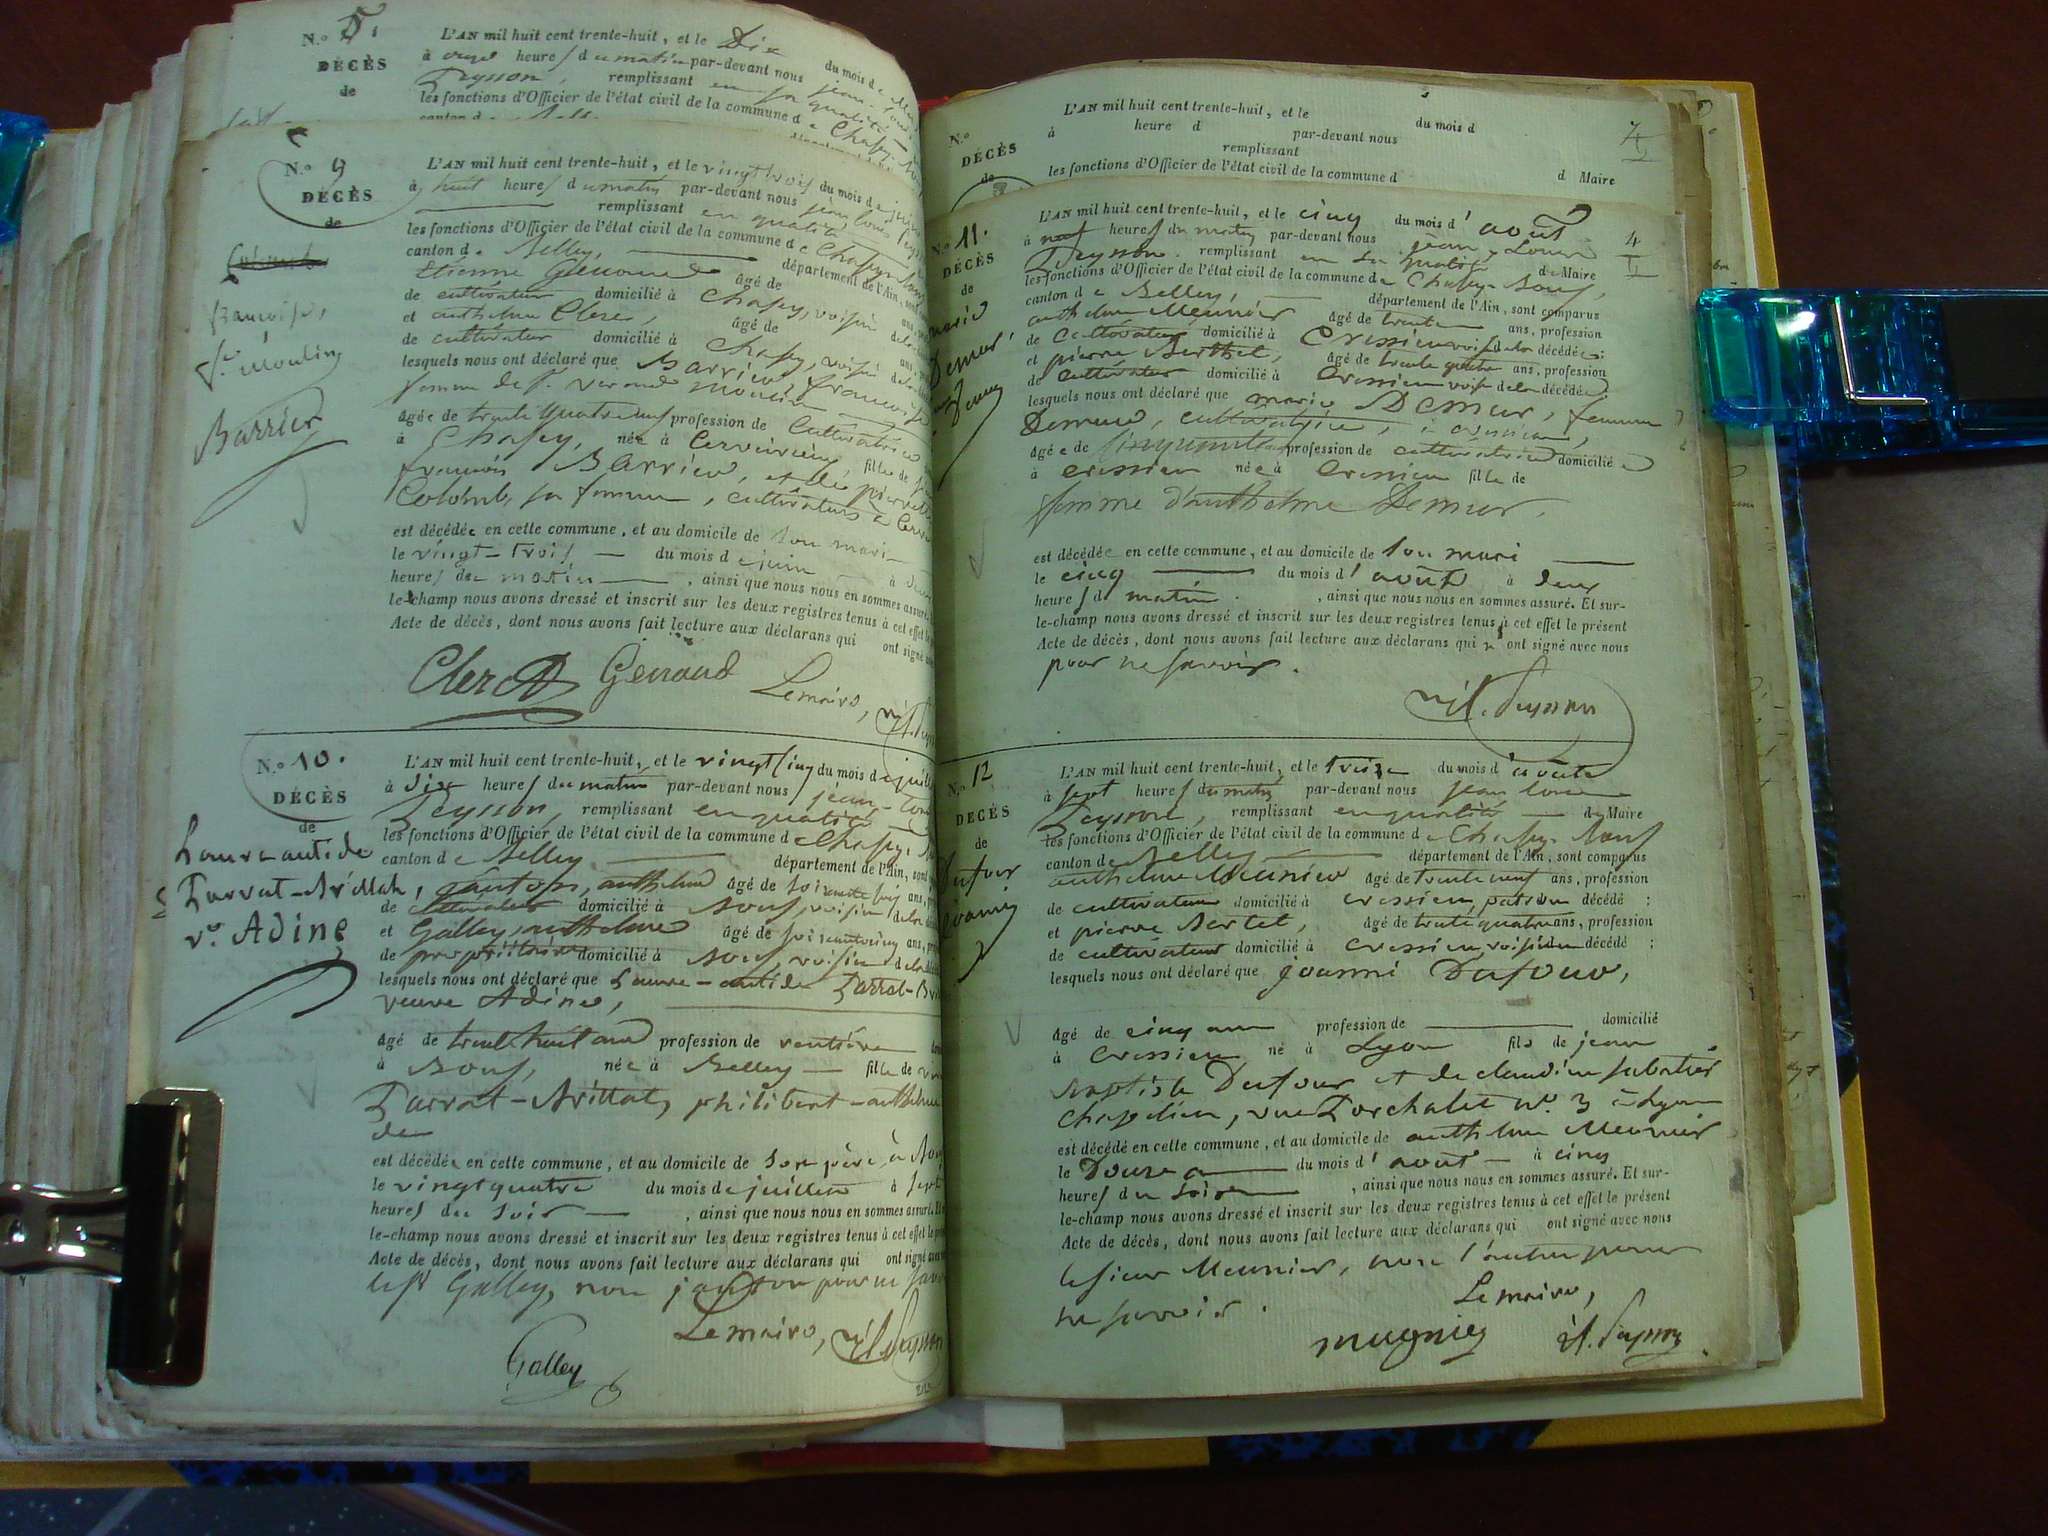 N.o 5.
DÉCÈS
de
L'AN mil huit cent trente-huit, et le Dix du mois de
à onze heures du matin par-devant nous jean-Louis
Teysson, remplissant en sa qualité
les fonctions d'Officier de l'état civil de la commune de Chazey-
canton d
N.o 9
DÉCÈS
de
françoise,
Moulin
Barrier
L'AN mil huit cent trente-huit, et le vingt trois du mois de juin
à huit heures du matin par-devant nous jean Louis
remplissant en qualité
les fonctions d'Officier de l'état civil de la commune de Chazey-
canton de Belley, département de l'Ain, sont
Etienne Genoud âgé de ans,
de cultivateur domicilié à Chazey, voisin de la
et anthelme Clerc, âgé de ans,
de cultivateur domicilié à Chazey, voisin de la
lesquels nous ont déclaré que Barrier, françoise
femme de moulin
âgée de trente quatre ans profession de Cultivatrice
à Chazey, née à fille de
françois Barrier, et de pierrette
Colomb, sa femme, cultivateurs à
est décédée en cette commune, et au domicile de son mari
le vingt-trois du mois de juin à
heures du matin, ainsi que nous nous en sommes assuré.
le-champ nous avons dressé et inscrit sur les deux registres tenus à cet effet le
Acte de décès, dont nous avons fait lecture aux déclarans qui ont signé
Clerc A Genoud
Lemaire,
N.o 10.
DÉCÈS
de
Laure-antide
Parrat-Brillat,
v.e Adine
L'AN mil huit cent trente-huit, et le vingt cinq du mois de
à dix heures du matin par-devant nous jean-Louis
Teysson, remplissant en qualité
les fonctions d'Officier de l'état civil de la commune de Chazey-
canton de Belley département de l'Ain, sont
janton, anthelme âgé de soixante six ans,
de cultivateur domicilié à Bons, voisin de la
et Galley, anthelme âgé de soixante cinq ans,
de propriétaire domicilié à Bons, voisin de la
lesquels nous ont déclaré que Laure-antide Parrat-
veuve Adine,
âgé de trente huit ans profession de rentière
à Bons, née à Belley fille de
Parrat-Brillat, philibert-anthelme
est décédée en cette commune, et au domicile de son père, à Bons
le vingt quatre du mois de juillet à sept
heures du soir, ainsi que nous nous en sommes assuré.
le-champ nous avons dressé et inscrit sur les deux registres tenus à cet effet le
Acte de décès, dont nous avons fait lecture aux déclarans qui ont signé
le sr Galley, non janton pour ne
Lemaire,
Galley
N.o
DÉCÈS
de
L'AN mil huit cent trente-huit, et le du mois d
à heure d par-devant nous
remplissant
les fonctions d'Officier de l'état civil de la commune d d Maire
N.o 11.
DÉCÈS
de
marie
Demur,
L'AN mil huit cent trente-huit, et le cinq du mois d'août
à neuf heures du matin par-devant nous jean-Louis
Teysson. remplissant en sa qualité de Maire
les fonctions d'Officier de l'état civil de la commune de Chazey-Bons,
canton de Belley, département de l'Ain, sont comparus
anthelme Meunier âgé de trente ans, profession
de Cultivateur domicilié à Cressieu voisin de la décédée ;
et pierre Berthet, âgé de trente quatre ans, profession
de Cultivateur domicilié à Cressieu voisin de la décédée
lesquels nous ont déclaré que marie Demur, femme
Demur, cultivatrice, à cressieu,
âgée de cinquante profession de cultivatrice domicilié
à cressieu née à cressieu fille de
femme d'anthelme Demur.
est décédée en cette commune, et au domicile de son mari
le cinq du mois d'août à deux
heures d matin. , ainsi que nous nous en sommes assuré. Et sur-
le-champ nous avons dressé et inscrit sur les deux registres tenus à cet effet le présent
Acte de décès, dont nous avons fait lecture aux déclarans qui n'ont signé avec nous
pour ne savoir.
N.o 12
DÉCÈS
de
Dufour
joanni
L'AN mil huit cent trente-huit, et le treize du mois d'août
à sept heures du matin par-devant nous jean louis
Teysson, remplissant en qualité de Maire
les fonctions d'Officier de l'état civil de la commune de Chazey-Bons
canton de Belley département de l'Ain, sont comparus
anthelme Meunier âgé de trente neuf ans, profession
de cultivateur domicilié à cressieu, patron décédé ;
et pierre Bertet, âgé de trente quatre ans, profession
de cultivateur domicilié à cressieu, voisin du décédé ;
lesquels nous ont déclaré que joanni Dufour,
âgé de cinq ans profession de domicilié
à Cressieu né à Lyon fils de jean
Baptiste Dufour et de claudine sabatier
Chapelier, rue Porchalet n.o 3 à Lyon
est décédé en cette commune, et au domicile de anthelme Meunier
le Douze du mois d'août à cinq
heures du soir , ainsi que nous nous en sommes assuré. Et sur-
le-champ nous avons dressé et inscrit sur les deux registres tenus à cet effet le présent
Acte de décès, dont nous avons fait lecture aux déclarans qui ont signé avec nous
le sieur Meunier, non l'autre pour
ne savoir.
Le maire,